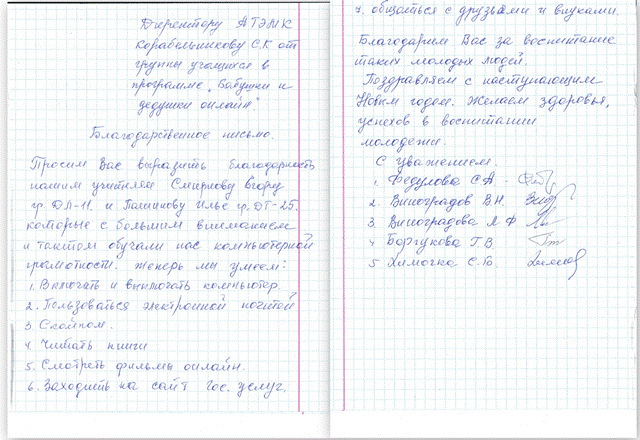 Директору АТЭМК
Корабельникову С.К от
группы учащихся в
программе „Бабушки и
дедушки онлайн"
Благодарственное письмо.
Просим Вас выразить благодарность
нашим учителям Смирнову Егору
гр. ДЛ-11. и Паничкову Илье гр. ДГ-25.
которые с большим вниманием
и тактом обучали нас компьютерной
грамотности. Теперь мы умеем:
1. Включать и выключать компьютер.
2. Пользоваться электронной почтой
3. Скайпом.
4. Читать книги
5. Смотреть фильмы онлайн.
6. Заходить на сайт Гос. услуг.
7. общаться с друзьями и внуками.
Благодарим Вас за воспитание
таких молодых людей.
Поздравляем с наступающим
Новым годом. Желаем здоровья,
успехов в воспитании
молодежи.
С уважением.
1. Федулова С А
2. Виноградов В.Н.
3. Виноградова Л Ф
4 Боргукова Г. В.
5 Химочка С. Б.